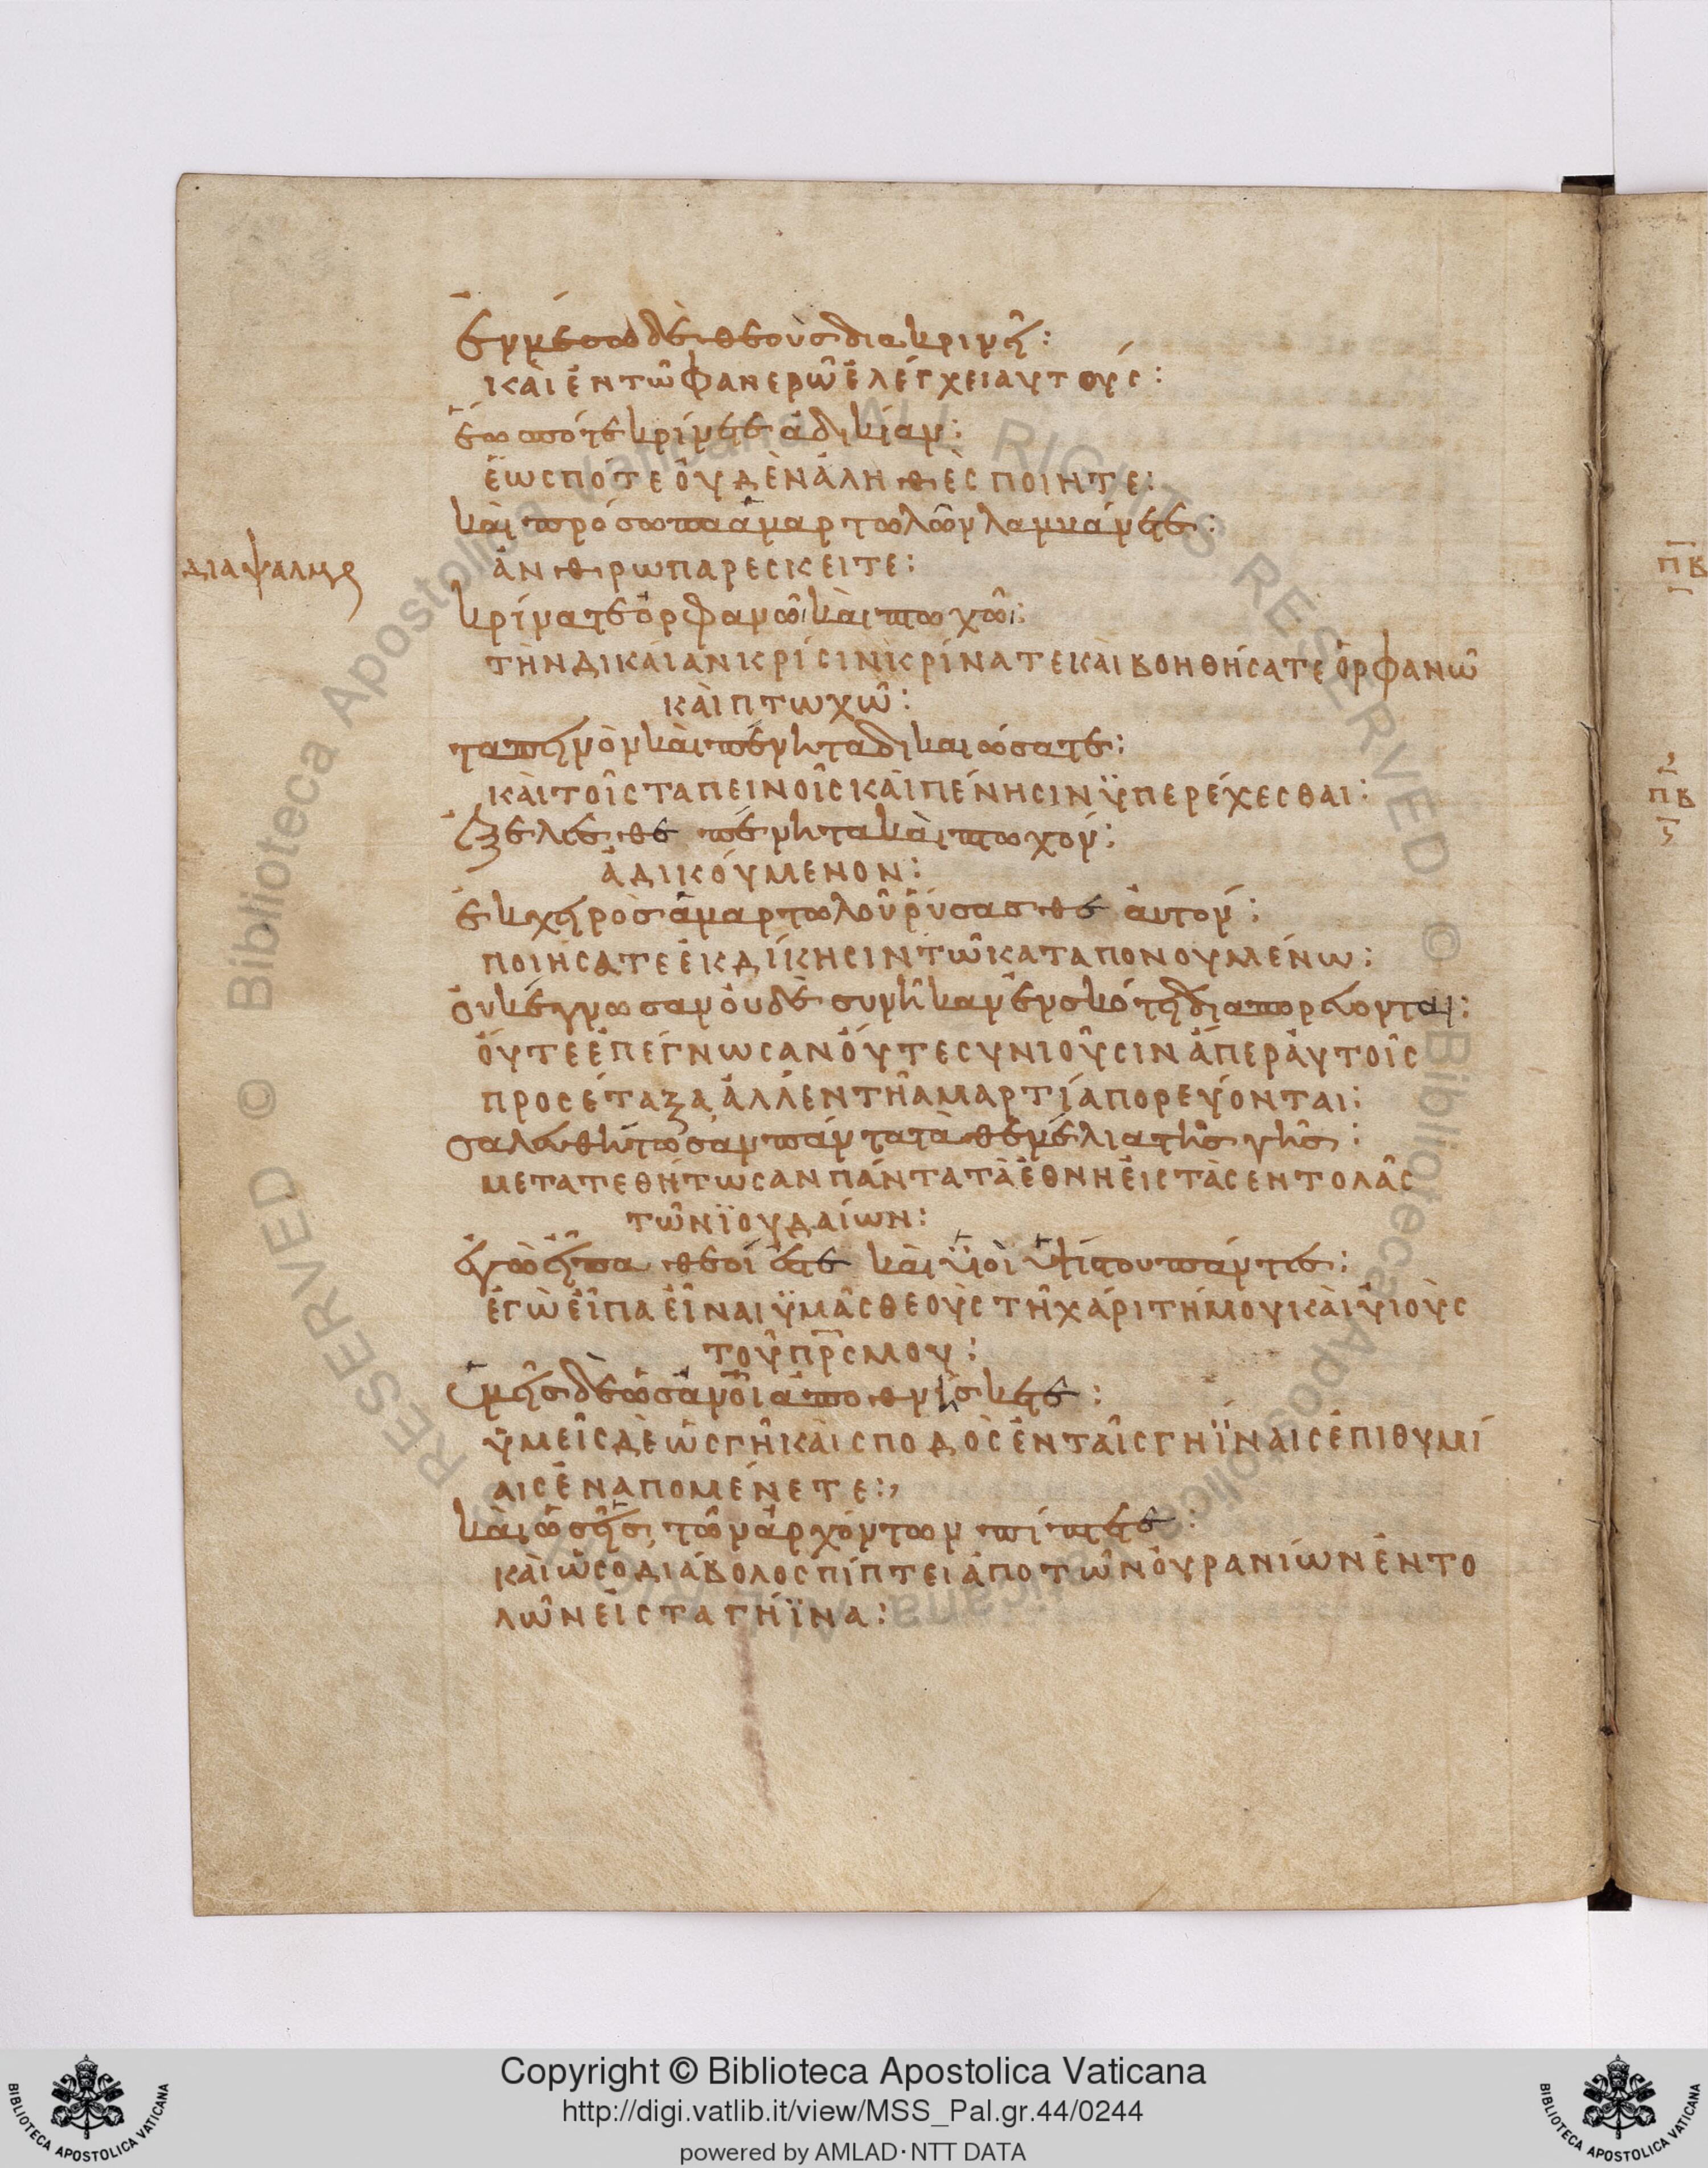 ἐν μέσω δὲ θεοὺσ διακρινεῖ:
ΚΑΙ ἐΝ Τῶ ΦΑΝΕΡῶ ἐΛέΓΧΕΙ ΑΥΤΟΥς:
ἕωσ πότε κρίνετε ἀδικίαν:
ἕΩς ΠΟΤΕ ΟΥΔὲΝ ἀΛΗΘὲς ΠΟΙΗΤΕ:
καὶ πρόσωπα ἁμαρτωλῶν λαμβάνετε:
ΔΙΑΨΑΛΜΑ
ἀΝΘΡΩΠΑΡΕςΚΕΙΤΕ:
κρίνατε ὀρφανῶ καὶ πτωχῶ:
ΤὴΝ ΔΙΚΑίΑΝ ΚΡίςΙΝ ΚΡίΝΑΤΕ ΚΑὶ ΒΟΗΘΗςΑΤΕ ὀΡΦΑΝῶ
ΚΑὶ ΠΤΩΧῶ:
ταπεινὸν καὶ πένητα δικαιώσατε:
ΚΑὶ ΤΟῖς ΤΑΠΕΙΝΟῖς ΚΑὶ ΠέΝΗςΙΝ ϋΠΕΡέΧΕςΘΑΙ:
ἐξέλεσθε πένητα καὶ πτωχόν:
ἀΔΙΚΟΥΜΕΝΟΝ:
ἐκ χειρὸσ ἁμαρτωλοῦ ῥύσασθε ἀυτον:
ΠΟΙήςΑΤΕ ἐΚΔίΚΗςΙΝ Τῶ ΚΑΤΑΠΟΝΟΥΜέΝΩ:
ὀυκ έγνωσαν ὀυδὲ συνῆκαν ἐν σκότει διαπορέυονται:
ὀύΤΕ ἐΠέΓΝΩςΑΝ ὀύΤΕ ςΥΝΙΟῦςΙΝ ἅΠΕΡ ἀΥΤΟῖς
ΠΡΟςέΤΑΞΑ ἀΛΛ ἐΝ Τῆ ἁΜΑΡΤίΑ ΠΟΡΕύΟΝΤΑΙ:
σαλευθήτωσαν πάντα τὰ θεμέλια τῆσ γῆσ:
ΜΕΤΑΤΕΘήΤΩςΑΝ ΠάΝΤΑ Τὰ ἔΘΝΗ ἐΙς Τὰς ΕΝΤΟΛὰς
ΤῶΝ ϊΟΥΔΑίΩΝ:
ἐγὼ εἶπα θεοί ἐστε καὶ ὑϊοὶ ὑψίστου πάντεσ:
ἐΓὼ ἐῖΠΑ ἐῖΝΑΙ ϋΜᾶς ΘΕΟὺς Τῆ ΧάΡΙΤΗ ΜΟΥ ΚΑὶ ὑΙΟὺς
ΤΟῦ ΠΡς ΜΟΥ:
ὑμεῖσ δὲ ὡσ ἄνοι ἀποθνήσκετε:
ὑΜΕῖς Δὲ ὡς Γῆ ΚΑὶ ςΠΟΔΟς ἐΝ ΤΑῖς ΓΗϊΝΑΙς ἐΠΙΘΥΜί
ΑΙς ἐΝΑΠΟΜέΝΕΤΕ:,
καὶ ὡσ εἷσ τῶν ἀρχόντων πίπτετε:
ΚΑὶ ὡς Ο ΔΙάΒΟΛΟς ΠίΠΤΕΙ ἀΠΟ ΤῶΝ ΟΥΡΑΝίΩΝ ἐΝΤΟ
ΛῶΝ ἐΙς ΤΑ ΓήϊΝΑ:
ΠΒ
ΠΒ
Copyright © Biblioteca Apostolica Vaticana
http://digi.vatlib.it/view/MSS_Pal.gr.44/0244
powered by AMLAD·NTT DATA
BIBLIOTECA APOSTOLICA VATICANA
BIBLIOTECA APOSTOLICA VATICANA